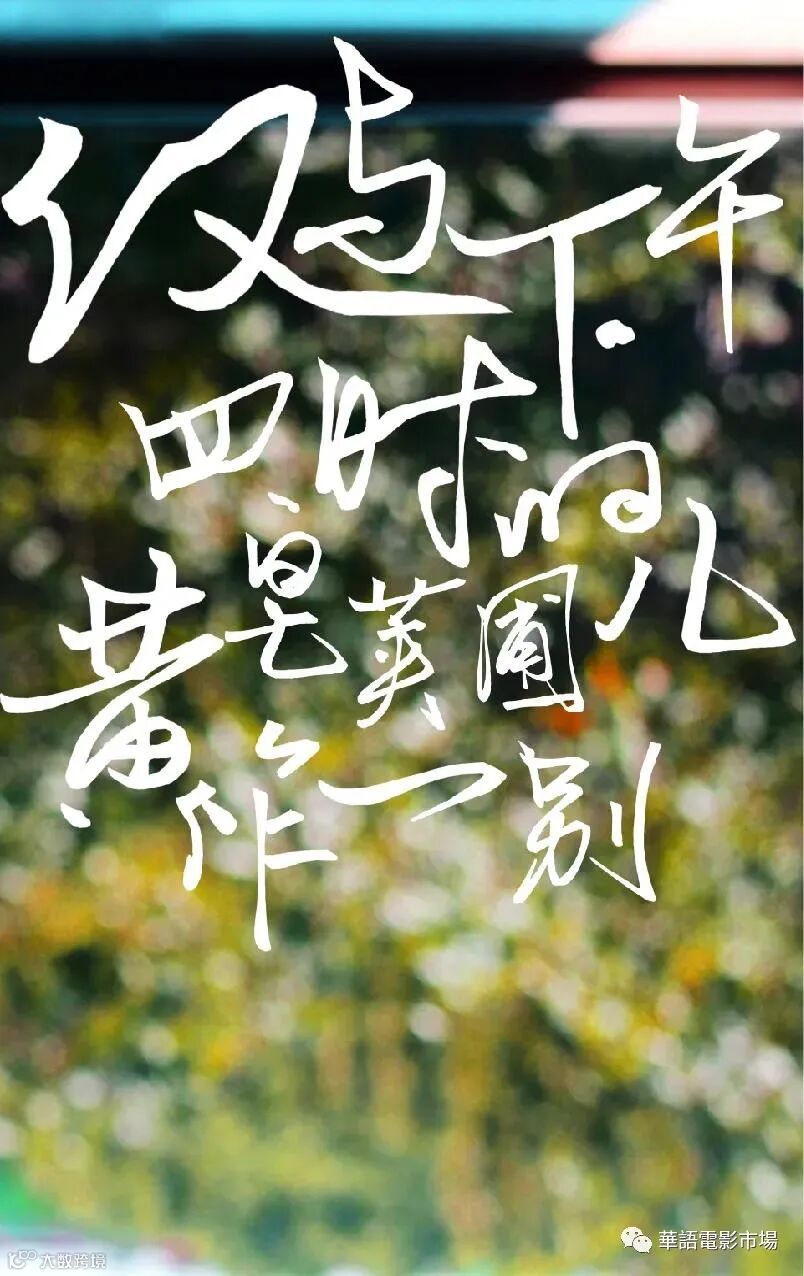 仅与下午
四时的
黄皂荚圃儿
作一别
大数跨境
華語電影市場